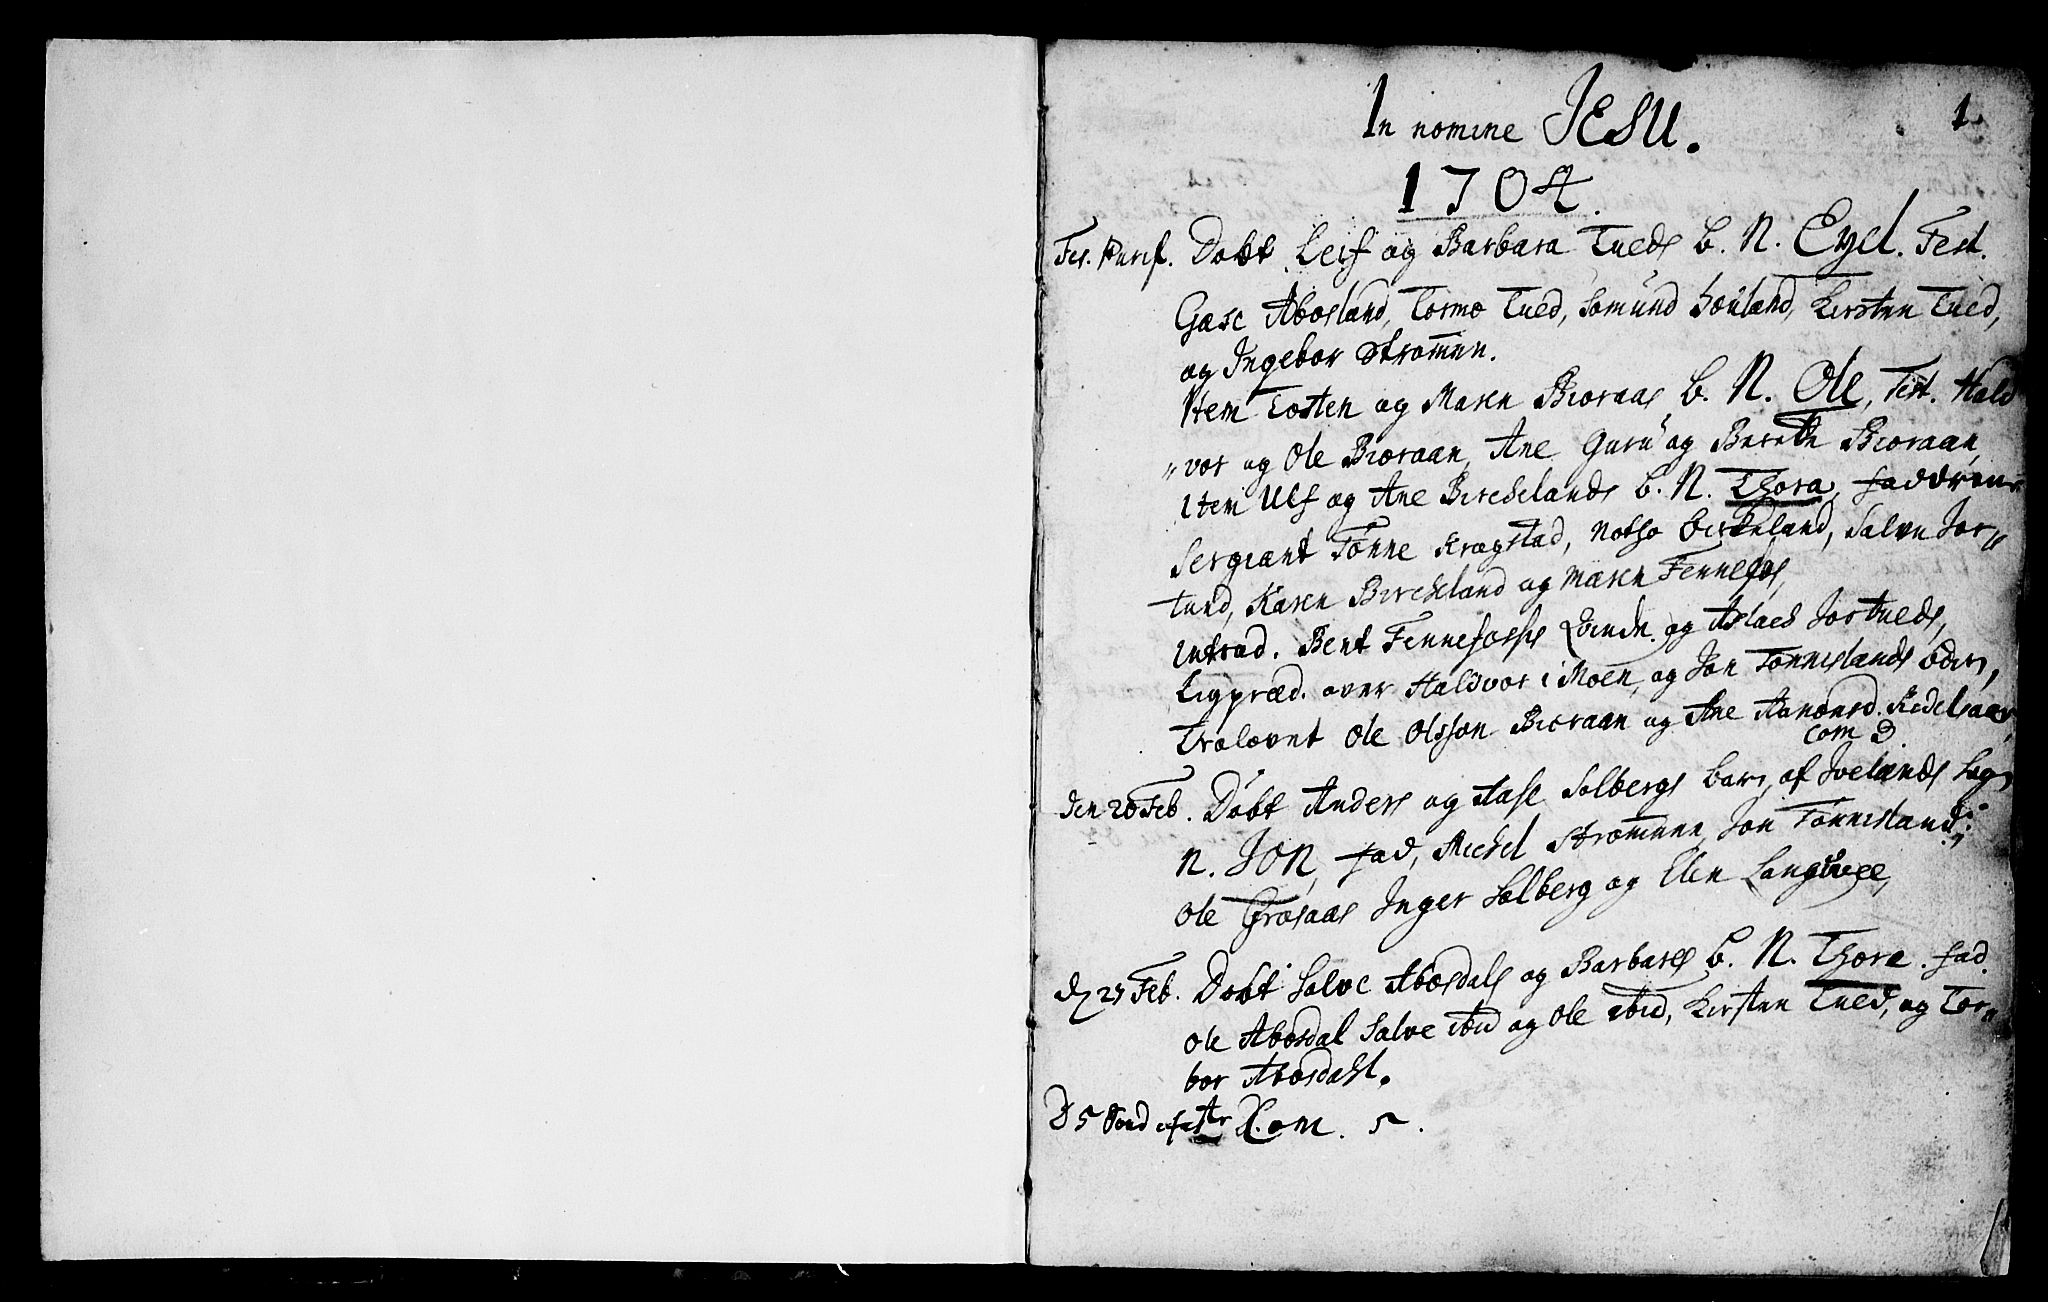 1.
In nomine JESU.
1704.
Fes. Purif. Døbt Leif og Barbara Tueds b. N. Eyel. Test.
Gase Abosland, Tormo Tued, Somund Honland, Kirsten Tued,
og Ingebor Strømen.
Item Tosten og Maren Bioraas b. N. Ole, Test. Hald
vor og Ole Bioraan, Ane Guru og Berethe Bioraan,
Item Ulf og Ane Birchelands b. N. Thora, faddrene
Sergiant Tønne Kragstad, Notho Birkeland, Salve Jor
tued, Karen Bircheland og Maren Fennefos,
Introd. Bent Fennefosses Qvinde og Aslach Jortueds,
Ligpræd. over Haldvor i Moen, og Jon Tønneslands
Trolovet Ole Olsson Bioraan og Ane Aanonsd.
Com
Den 20 Feb. Døbt Anders og Aase Solbergs barn af Ivelands Sogn
N. JON, fad, Michel Strømmen, Jon Tønnesland,
Ole Grosaas Inger Solberg og Elen
d 25 Feb. Døbt Salve Abosdals og Barbares b. N. Thore. fad.
Ole Abosdal Salve ibid og Ole ibid, Kirsten Tued, og Tor
bor Abosdahl.
D 5 Com. 5.